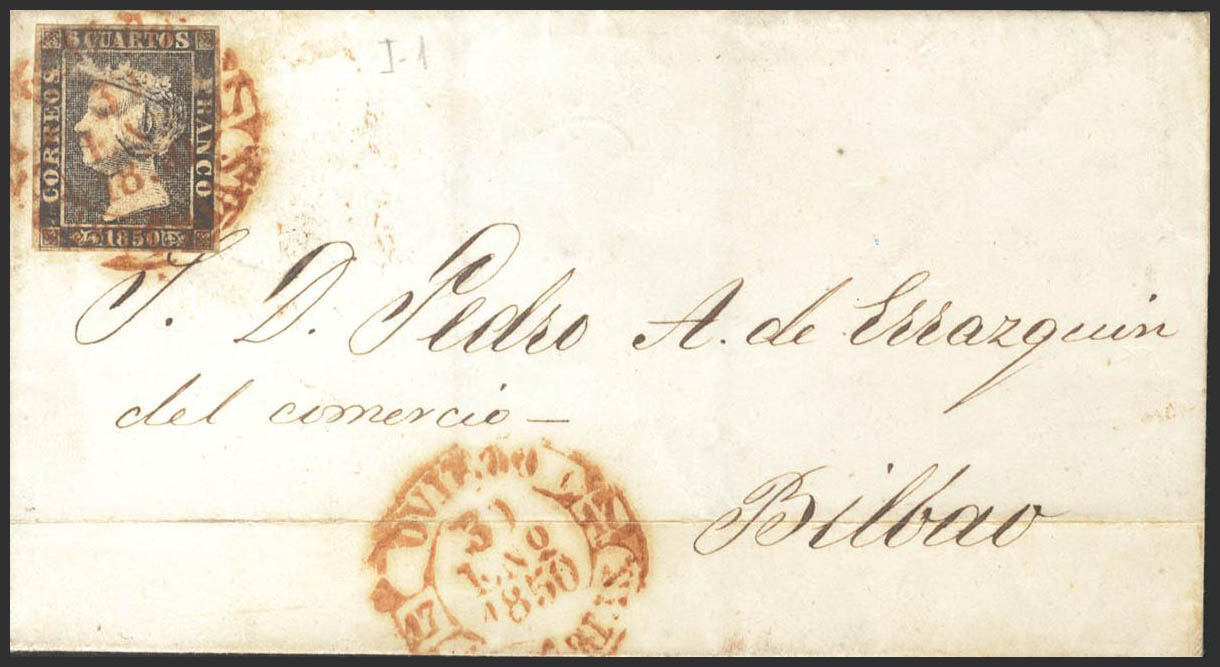 6 CUARTOS
CORREOS
FRANCO
1850
I-1
S. D. Pedro A. de Errazquin
del comercio —
Bilbao
OVIEDO
30
ENO
1850